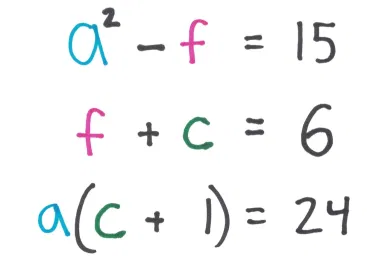 a² - f = 15
f + c = 6
a(c + 1) = 24